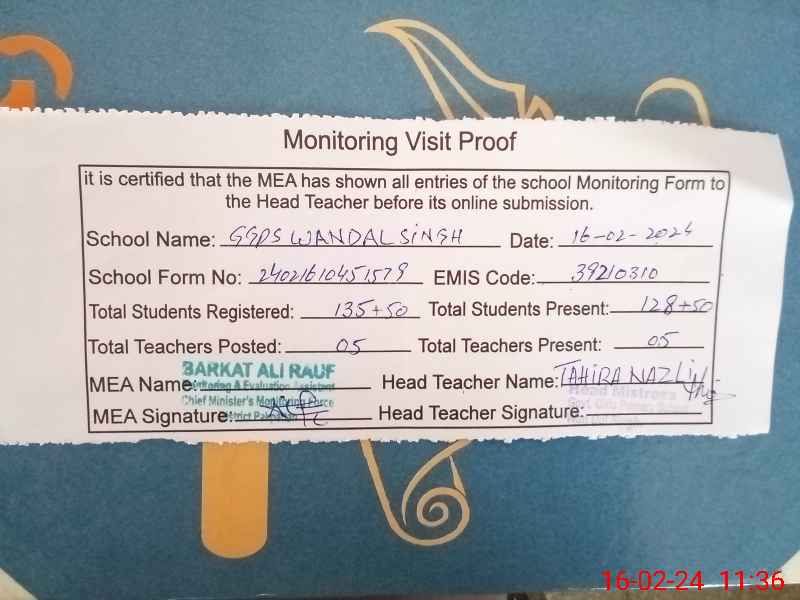 Monitoring Visit Proof
it is certified that the MEA has shown all entries of the school Monitoring Form to
the Head Teacher before its online submission.
School Name: GGPS WANDAL SINGH Date: 16-02-2024
School Form No: 24021610451579 EMIS Code: 39210310
Total Students Registered: 135+50 Total Students Present: 128+50
Total Teachers Posted: 05 Total Teachers Present: 05
BARKAT ALI RAUF
MEA Name: Monitoring & Evaluation Assistant Head Teacher Name: TAHIRA NAZLI
Chief Minister's Monitoring Force Head Mistress
MEA Signature: District Head Teacher Signature:
Govt.
16-02-24 11:36